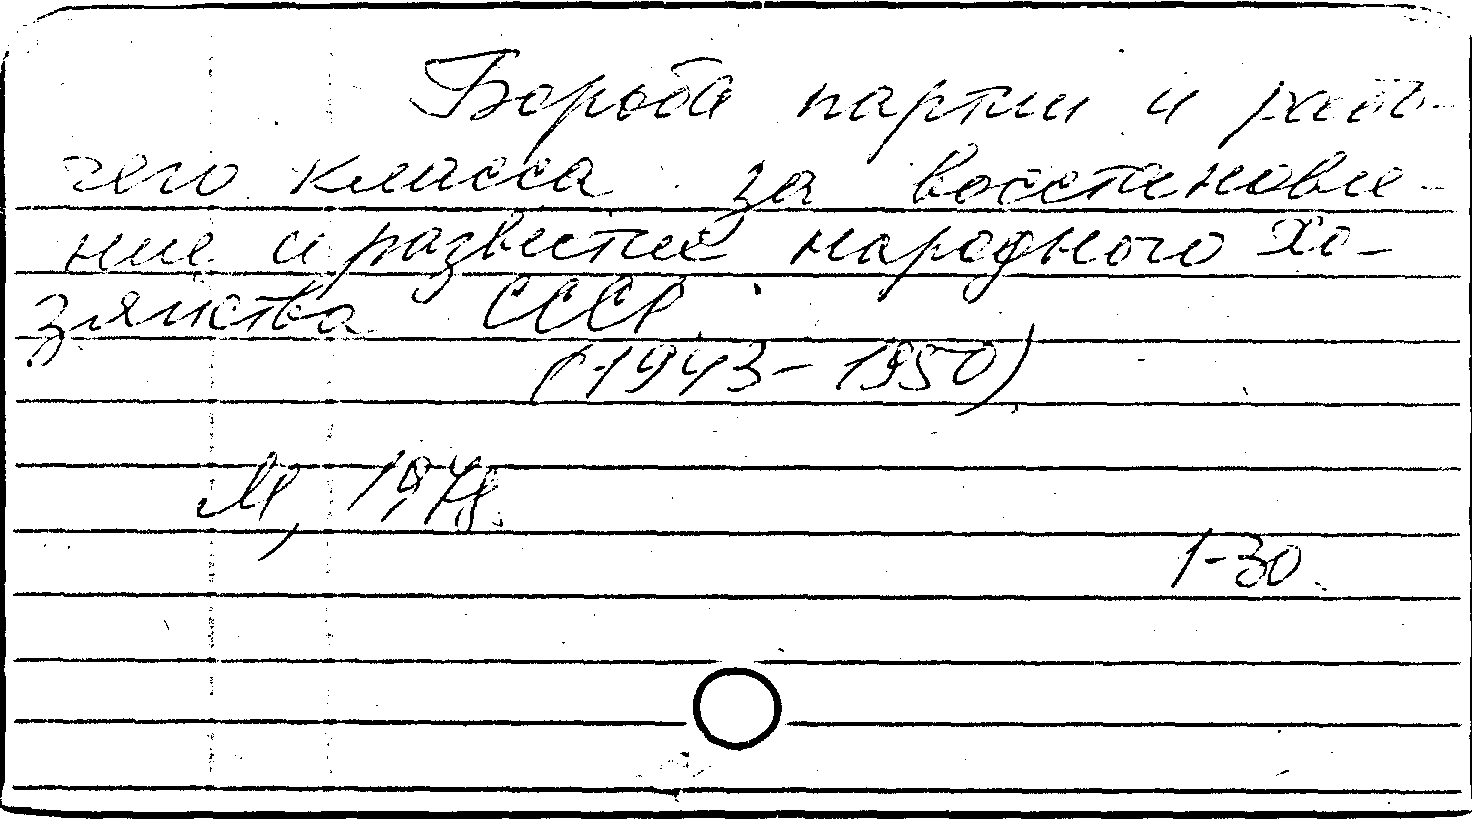 Борьба партии и рабо-
чего класса за восстановле-
ние и развитие народного хо-
зяйства СССР.
(1943-1950)
М, 1978.
1-30.